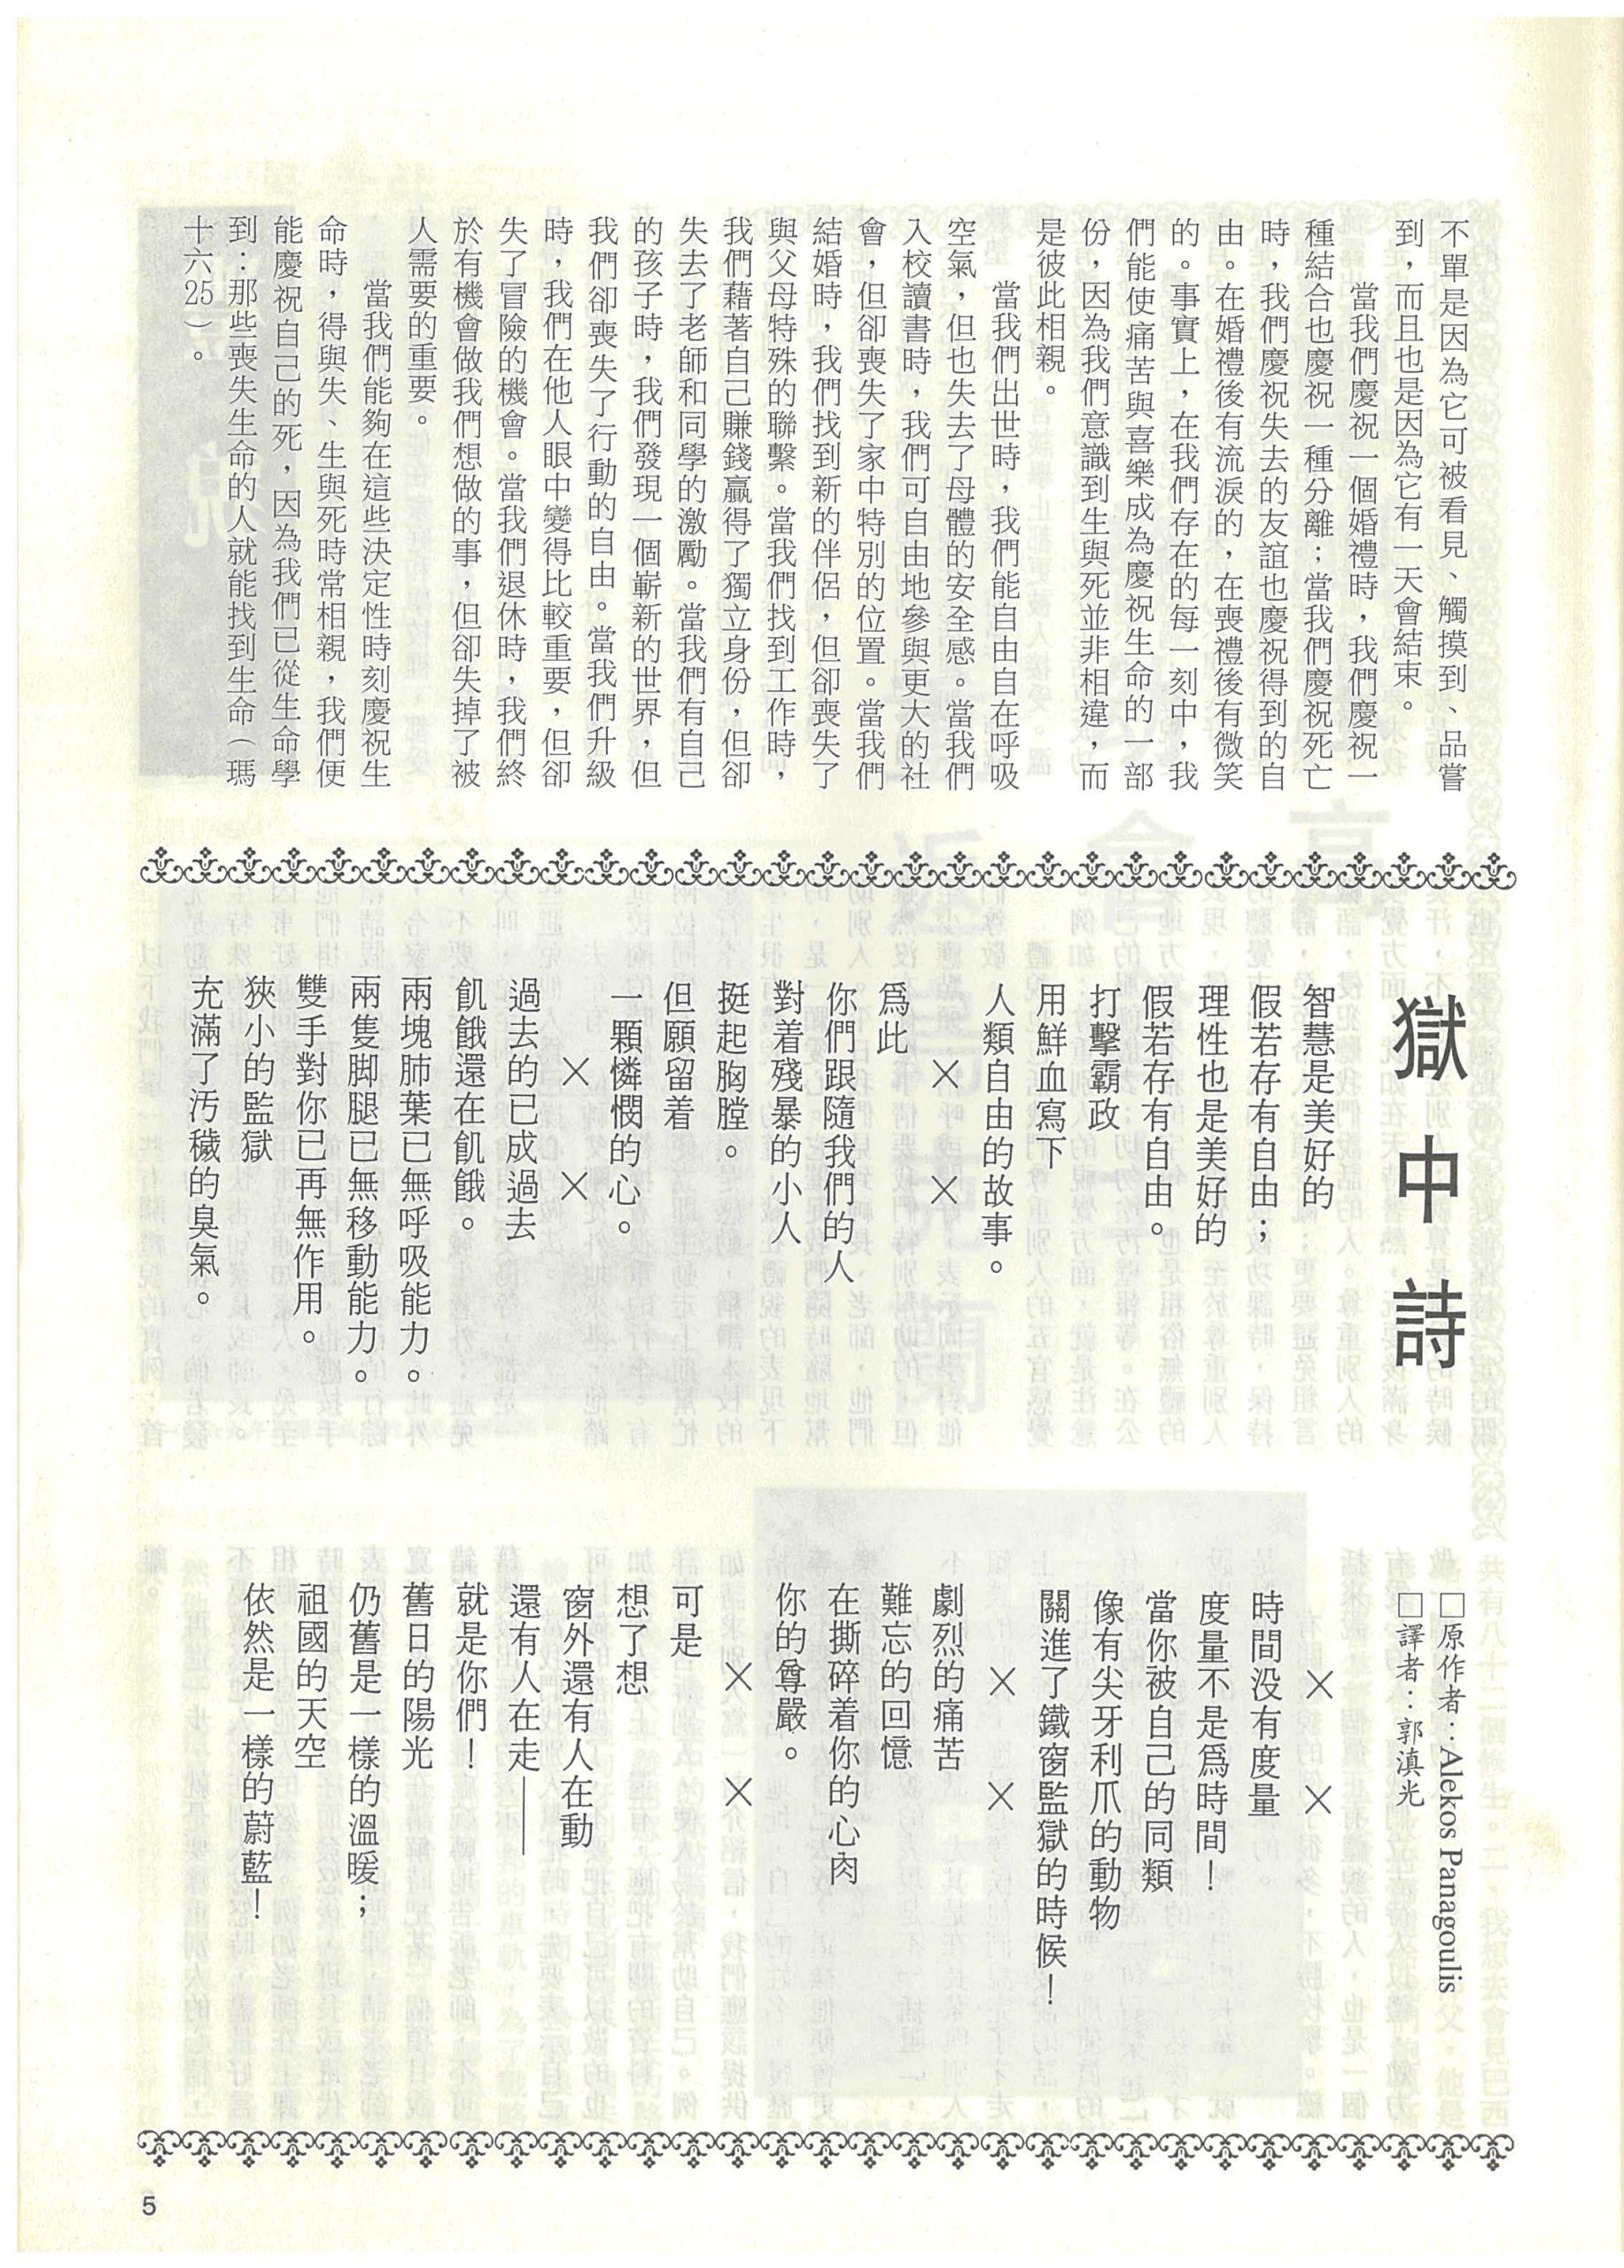 不單是因為它可被看見、觸摸到、品嘗
到，而且也是因為它有一天會結束。
當我們慶祝一個婚禮時，我們慶祝一
種結合也慶祝一種分離；當我們慶祝死亡
時，我們慶祝失去的友誼也慶祝得到的自
由。在婚禮後有流淚的，在喪禮後有微笑
的。事實上，在我們存在的每一刻中，我
們能使痛苦與喜樂成為慶祝生命的一部
份，因為我們意識到生與死並非相違，而
是彼此相親。
當我們出世時，我們能自由自在呼吸
空氣，但也失去了母體的安全感。當我們
入校讀書時，我們可自由地參與更大的社
會，但卻喪失了家中特別的位置。當我們
結婚時，我們找到新的伴侶，但卻喪失了
與父母特殊的聯繫。當我們找到工作時，
我們藉著自己賺錢贏得了獨立身份，但卻
失去了老師和同學的激勵。當我們有自己
的孩子時，我們發現一個嶄新的世界，但
我們卻喪失了行動的自由。當我們升級
時，我們在他人眼中變得比較重要，但卻
失了冒險的機會。當我們退休時，我們終
於有機會做我們想做的事，但卻失掉了被
人需要的重要。
當我們能夠在這些決定性時刻慶祝生
命時，得與失、生與死時常相親，我們便
能慶祝自己的死，因為我們已從生命學
到：那些喪失生命的人就能找到生命（瑪
十六25）。
獄中詩
□原作者：Alekos Panagoulis
□譯者：郭滇光
智慧是美好的
假若存有自由；
理性也是美好的
假若存有自由。
打擊霸政
用鮮血寫下
人類自由的故事。
× ×
爲此
你們跟隨我們的人
對着殘暴的小人
挺起胸膛。
但願留着
一顆憐憫的心。
× ×
過去的已成過去
飢餓還在飢餓。
兩塊肺葉已無呼吸能力。
兩隻脚腿已無移動能力。
雙手對你已再無作用。
狹小的監獄
充滿了汚穢的臭氣。
× ×
時間没有度量
度量不是爲時間！
當你被自己的同類
像有尖牙利爪的動物
關進了鐵窗監獄的時候！
× ×
劇烈的痛苦
難忘的回憶
在撕碎着你的心肉
你的尊嚴。
× ×
可是
想了想
窗外還有人在動
還有人在走——
就是你們！
舊日的陽光
仍舊是一樣的溫暖；
祖國的天空
依然是一樣的蔚藍！
5